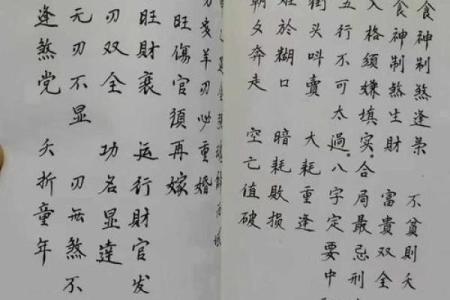 食神制煞逢枭 不貧則夭
食神制煞生財 富貴双全
入格须嫌填实 合局最忌刑
五行不可太過 八字定要中
街头叫賣 大耗重逢
於糊口 暗耗敗损
朝夕奔走 空亡值破
羊刃必重婚
旺傷官須再嫁
旺財衰 运行財官发
刃双全 功名显達
无刃不显 刃無煞不
逢煞党 夭折童年